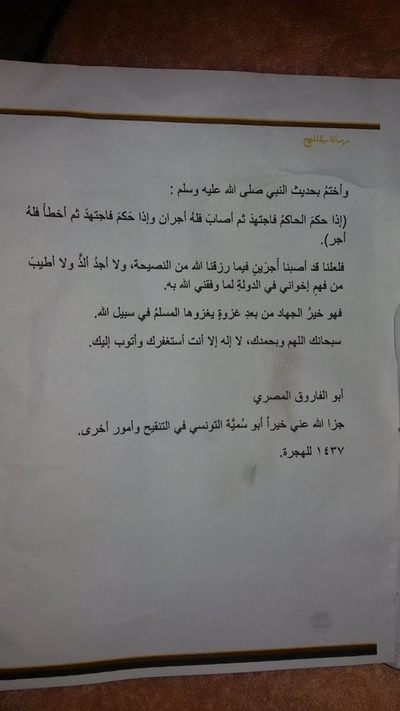 رسالة في المنهج
وأختمُ بحديث النبي صلى الله عليه وسلم :
(إذا حكمَ الحاكمُ فاجتهدَ ثم أصابَ فلهُ أجران وإذا حَكمَ فاجتهدَ ثم أخطأَ فلهُ
أجر).
فلعلنا قد أصبنا أجرَينِ فيما رزقنا الله من النصيحة، ولا أجدُ ألذَّ ولا أطيبَ
من فهمِ إخواني في الدولةِ لما وفقني الله به.
فهو خيرُ الجهاد من بعدِ غزوةٍ يغزوها المسلمُ في سبيل الله.
سبحانك اللهم وبحمدك، لا إله إلا أنت أستغفرك وأتوب إليك.
أبو الفاروق المصري
جزا الله عني خيراً أبو سُميَّة التونسي في التنقيح وأمور أخرى.
١٤٣٧ للهجرة.